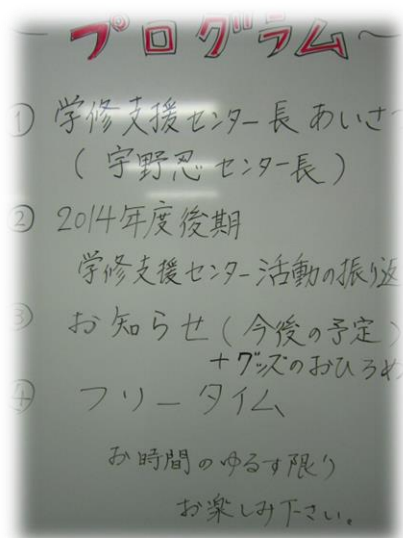 ~プログラム~
① 学修支援センター長 あいさつ
(宇野忍 センター長)
② 2014年度後期
学修支援センター活動の振り返
③ お知らせ(今後の予定)
+グッズのおひろめ
④ フリータイム
お時間のゆるす限り
お楽しみ下さい。